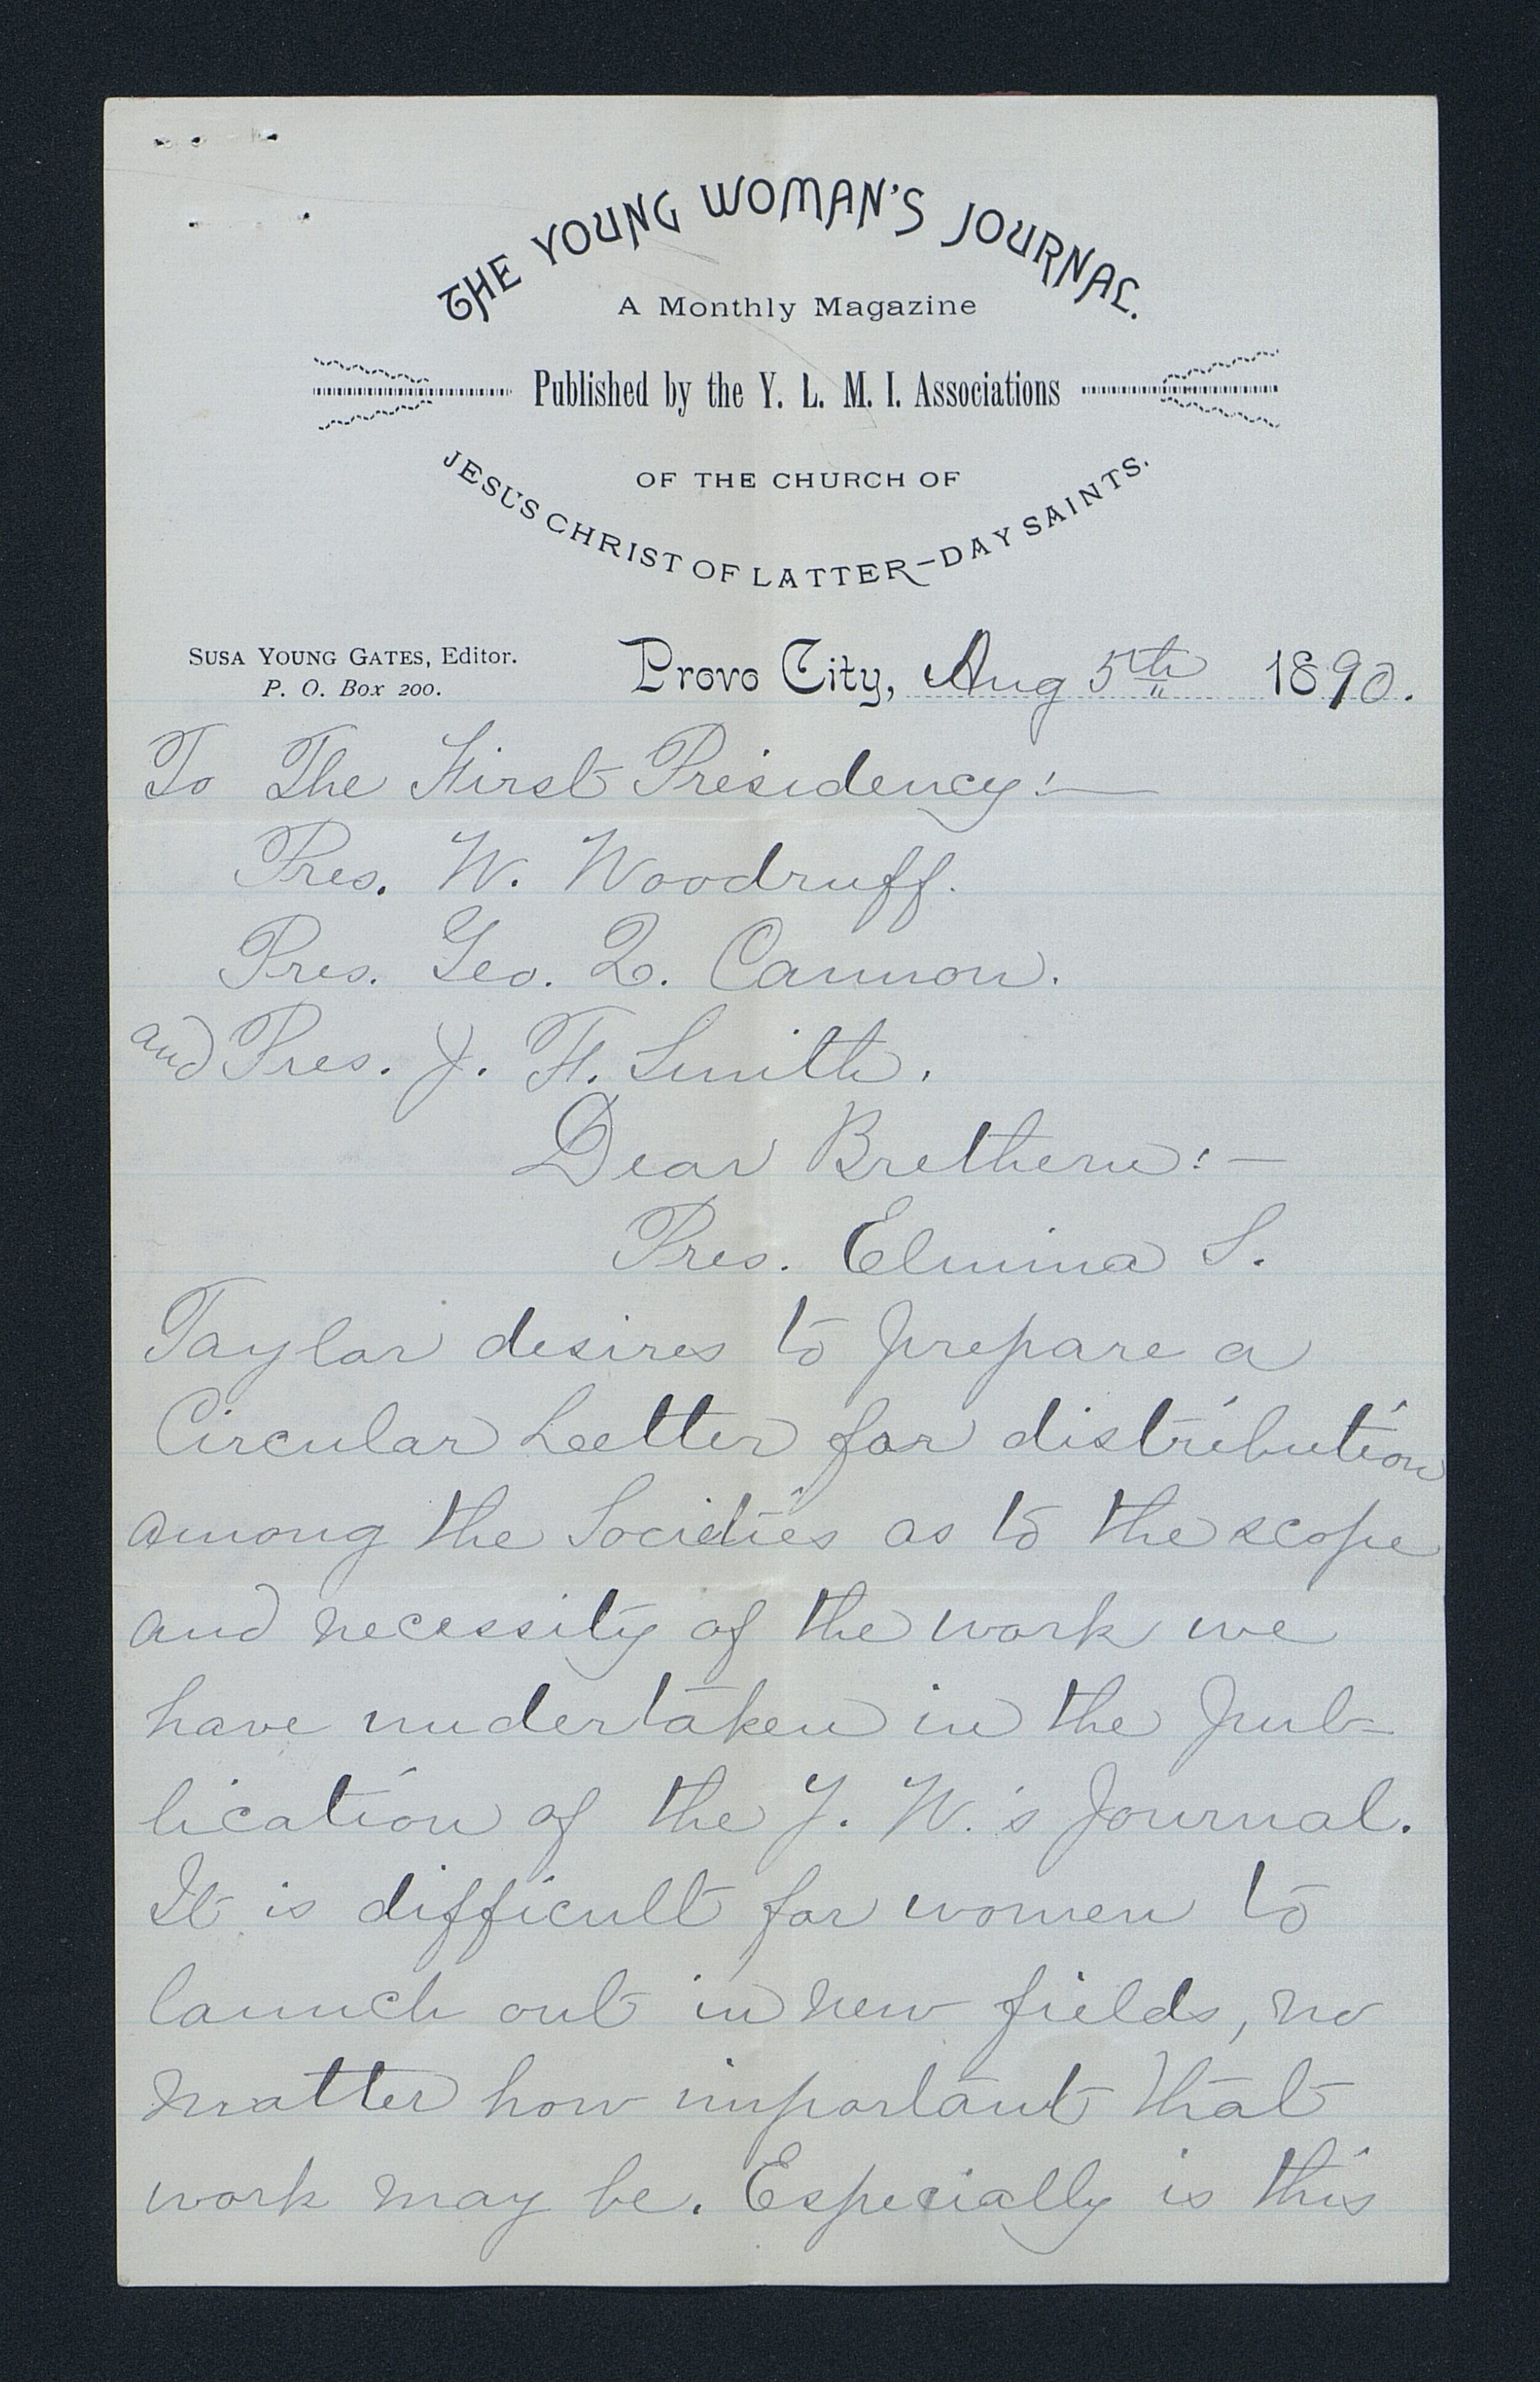 THE YOUNG WOMAN'S JOURNAL.
A Monthly Magazine
Published by the Y. L. M. I. Associations
OF THE CHURCH OF
JESUS CHRIST OF LATTER-DAY SAINTS.
SUSA YOUNG GATES, Editor.
P. O. Box 200.
Provo City, Aug 5th 1890.
To The First Presidency:—
Pres. W. Woodruff.
Pres. Geo. Q. Cannon.
and Pres. J. F. Smith.
Dear Brethern:—
Pres. Elmina S.
Taylor desires to prepare a
Circular Letter for distribution
among the Societies as to the scope
and necessity of the work we
have undertaken in the pub-
lication of the Y. W.'s Journal.
It is difficult for women to
launch out in new fields, no
matter how important that
work may be. Especially is this